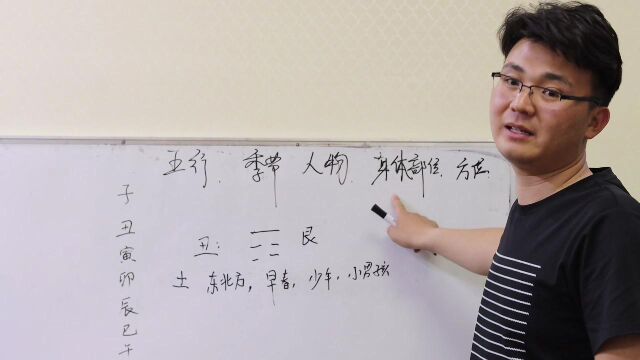 五行、季节 人物、身体部位、方位
丑: 艮
土 东北方, 早春, 少年, 小男孩
子
丑
寅
卯
辰
巳
午